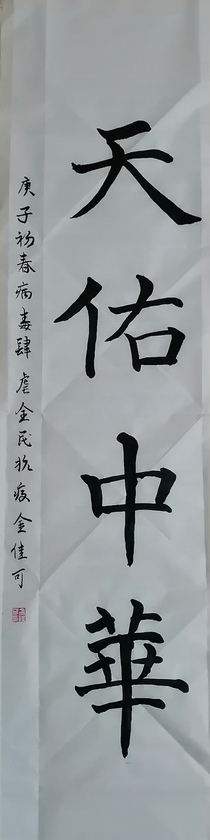 天佑中華
庚子初春病毒肆虐全民抗疫金佳可